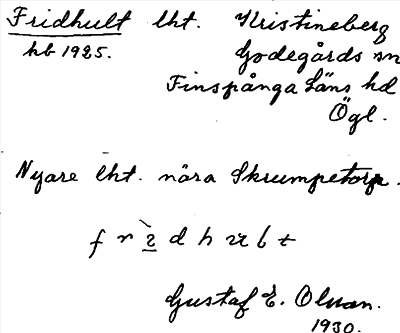 Fridhult lht. Kristineberg
hb 1925. Godegårds sn
Finspånga Läns hd
Ögl.
Nyare lht. nära Skrumpetorp.
Gustaf E. Olsson.
1930.